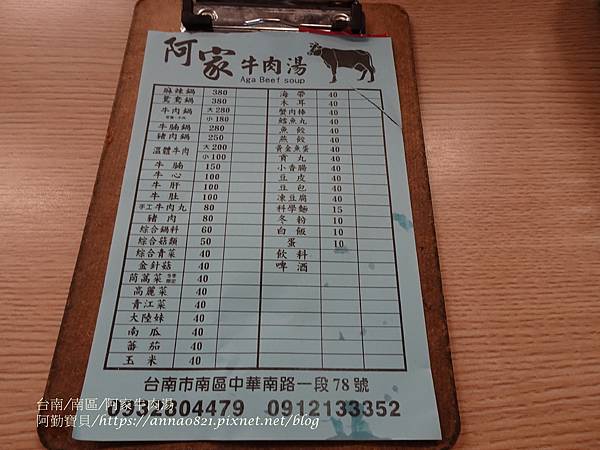 阿家牛肉湯
Aga Beef soup
麻辣鍋 380
鴛鴦鍋 380
牛肉鍋 大280
小180
牛腩鍋 280
豬肉鍋 250
溫體牛肉 大200
小100
牛腩 150
牛心 100
牛肝 100
牛肚 100
手工牛肉丸 80
豬肉 80
綜合鍋料 60
綜合菇類 50
綜合青菜 40
金針菇 40
茼蒿菜 40
高麗菜 40
青江菜 40
大陸妹 40
南瓜 40
蕃茄 40
玉米 40
海帶 40
木耳 40
蟹肉棒 40
鱈魚丸 40
魚餃 40
燕餃 40
黃金魚蛋 40
貢丸 40
小香腸 40
豆皮 40
豆包 40
凍豆腐 40
科學麵 15
冬粉 10
白飯 10
蛋 10
飲料
啤酒
台南市南區中華南路一段78號
0932804479 0912133352
台南/南區/阿家牛肉湯
阿勤寶貝/https://annao821.pixnet.net/blog